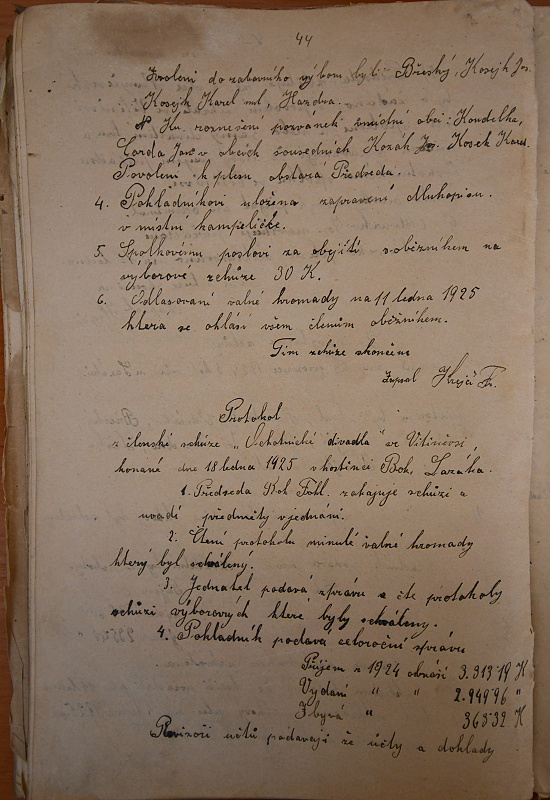 44
Zvoleni do zabavního výboru byli: Břeský, Kosejk Jos.
Kosejk Karel ml., Hazdra.
Ku roznešení pozvánek místní obci: Koudelka,
Čarda Jar. v obcích sousedních Kozák Jos. Kosek Karel.
Povolení k plesu obstará Předseda.
4. Pokladníkovi uloženo zapravení dluhopisu.
v místní kampeličce.
5. Spolkovému poslovi za obejití s oběžníkem na
výborové schůze 30 K.
6. Odlasovaní valné hromady na 11 ledna 1925
která se ohlásí všem členům oběžníkem.
Tím schůze skončena
Zapsal Krejčí Fr.
Protokol
z členské schůze „Ochotnické divadla" ve
konané dne 18 ledna 1925 v hostinci Boh. Lazáka.
1. Předseda Boh. zahajuje schůzi a
uvadí předměty v jednání.
2. Čtení protokolu minulé valné hromady
který byl schválený.
3. Jednatel podavá zprávu a čte protokoly
schůzí výborových které byly schváleny.
4. Pokladník podavá celoroční zprávu
Příjem z 1924 obnáší 3.313·19 K
Vydaní " " " 2.949·96 "
Zbyvá " 365·32 K
Revizoři účtů podavají že účty a doklady